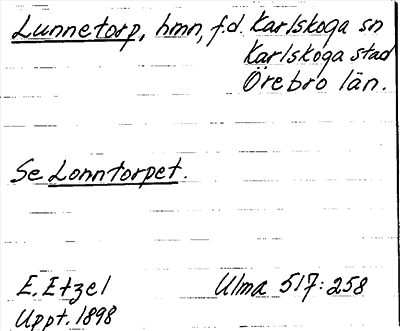 Lunnetorp, hmn, f.d. Karlskoga sn
Karlskoga stad
Örebro län.
Se Lonntorpet.
E. Etzel
Ulma 517:258
Uppt. 1898